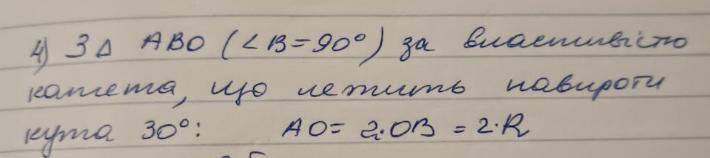 4) З Δ ABO (∠B=90°) за властивістю
катета, що лежить навпроти
кута 30°: AO= 2·OB = 2·R